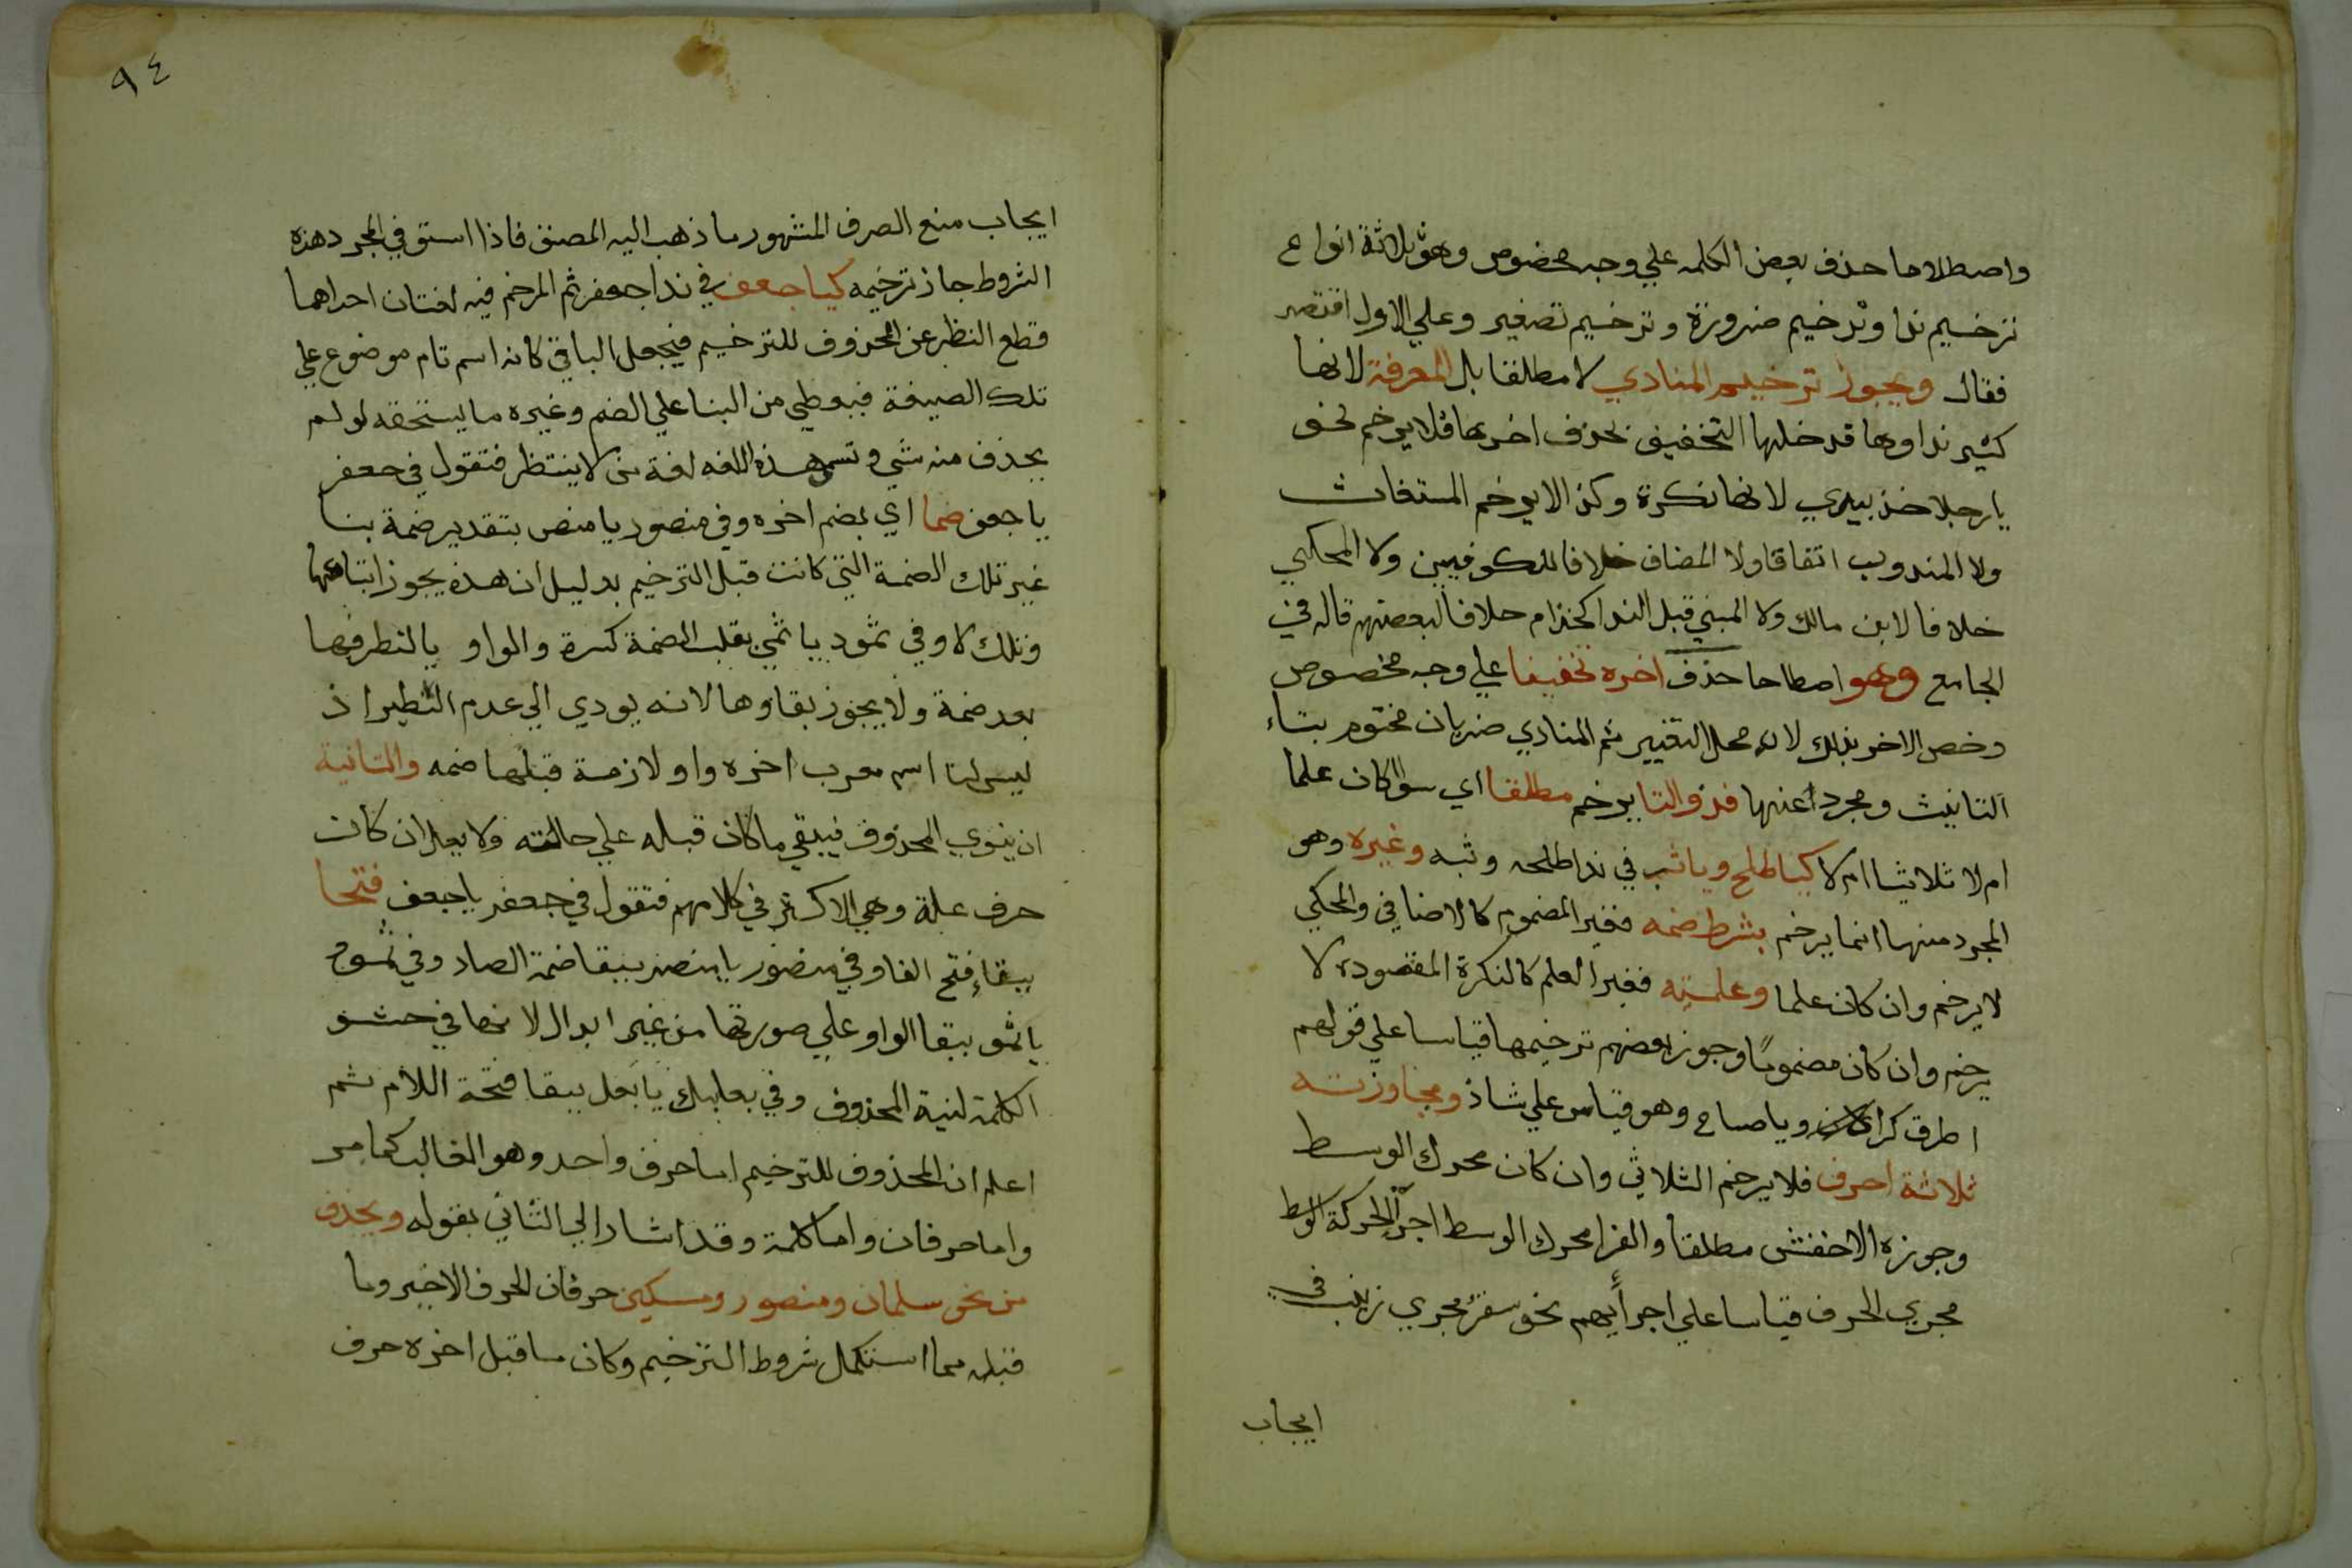 واصطلاحا حذف بعض الكلمه علي وجه مخصوص وهو ثلاثة انواع
ترخيم ندا وترخيم ضرورة وترخيم تصغير وعلي الاول اقتصر
فقال ويجوز ترخيم المنادي لا مطلقا بل المعرفة لانها
كثير نداوها قد خلها التخفيف بحذف اخرها فلا يرخم نحو
يا رجلا خذ بيدي لانها نكرة وكذا لا يرخم المستغاث
ولا المندوب اتفاقا ولا المضاف خلافا للكوفيين ولا المحكي
خلافا لابن مالك ولا المبني قبل الندا كحذام خلافا لبعضهم قاله في
الجامع وهو اصطلاحا حذف اخره تخفيفا علي وجه مخصوص
وخص الاخر بذلك لانه محل التغيير ثم المنادي ضربان مختوم بتاء
التانيث ومجرد عنها فذو التا يرخم مطلقا اي سوا كان علما
ام لا ثلاثيا ام لا كيا طلح ويا ثب في ندا طلحه وثبه وغيره وهو
المجرد منها انما يرخم بشرط ضمه فغير المضموم كالاضافي والمحكي
لا يرخم وان كان علما وعلميته فغير العلم كالنكرة المقصوده لا
يرخم وان كان مضموما وجوز بعضهم ترخيمها قياسا علي قولهم
اطرق كرا ويا صاح وهو قياس علي شاذ ومجاوزته
ثلاثة احرف فلا يرخم الثلاثي وان كان محرك الوسط
وجوزه الاخفش مطلقا والفرا محرك الوسط اجرا لحركة الوسط
مجري الحرف قياسا علي اجرايهم نحو سقر مجري زينب في
ايجاب
٩٤
ايجاب منع الصرف المشهور ما ذهب اليه المصنف فاذا استوفي المجرد هذه
الشروط جاز ترخيمه كيا جعف في ندا جعفر ثم المرخم فيه لغتان احداهما
قطع النظر عن المحذوف للترخيم فيجعل الباقي كانه اسم تام موضوع علي
تلك الصيغة فيعطي من البنا علي الضم وغيره ما يستحقه لو لم
يحذف منه شي وتسمي هذه اللغه لغة من لا ينتظر فتقول في جعفر
يا جعف ضما اي بضم اخره وفي منصور يا منص بتقدير ضمة بنا
غير تلك الضمة التي كانت قبل الترخيم بدليل ان هذه يجوز اتباعها
وتلك لا وفي ثمود يا ثمي بقلب الضمة كسرة والواو يا لتطرفها
بعد ضمة ولا يجوز بقاوها لانه يودي الي عدم النظير اذ
ليس لنا اسم معرب اخره واو لازمة قبلها ضمه والثانية
ان ينوي المحذوف فيبقي ما كان قبله علي حالته ولا يعل ان كان
حرف علة وهي الاكثر في كلامهم فتقول في جعفر يا جعف فتحا
ببقاء فتح الفا وفي منصور يا منص ببقا ضمة الصاد وفي ثمود
يا ثمو ببقا الواو علي صورتها من غير ابدال لانها في حشو
الكلمة لنية المحذوف وفي بعلبك يا بعل ببقا فتحة اللام ثم
اعلم ان المحذوف للترخيم اما حرف واحد وهو الغالب كما مر
واما حرفان واما كلمة وقد اشار الي الثاني بقوله ويحذف
من نحو سلمان ومنصور ومسكين حرفان الحرف الاخير وما
قبله مما استكمل شروط الترخيم وكان ما قبل اخره حرف